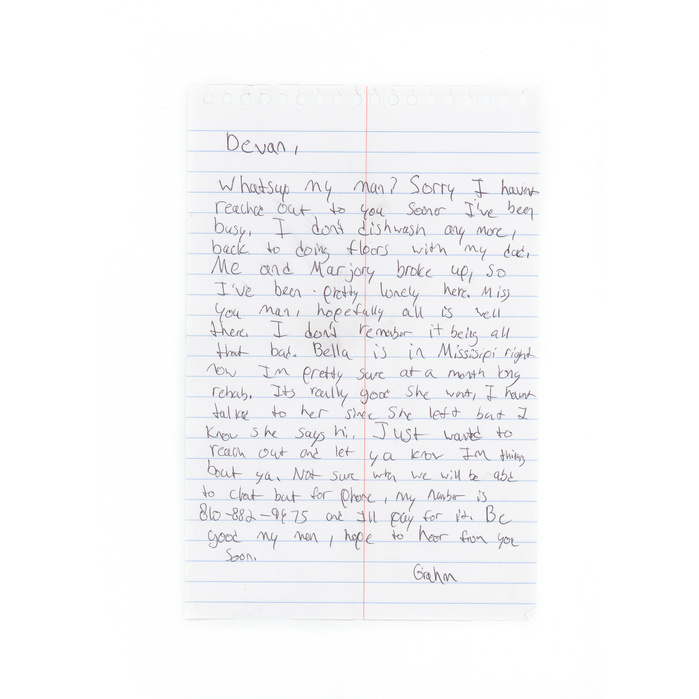 Devan,
Whatsup my man? Sorry I havnt
reached out to you sooner I've been
busy, I don't dishwash any more,
back to doing floors with my dad.
Me and Marjory broke up, so
I've been pretty lonely here. Miss
you man, hopefully all is well
there. I don't remember it being all
that bad. Bella is in Missisipi right
now Im pretty sure at a month long
rehab. Its really good she went, I havnt
talked to her since she left but I
know she says hi. Just wanted to
reach out and let ya know Im thinkg
bout ya. Not sure when we will be able
to chat but for phone, my number is
810-882-9475 and Ill pay for it. Be
good my man, hope to hear from you
soon.
Graham